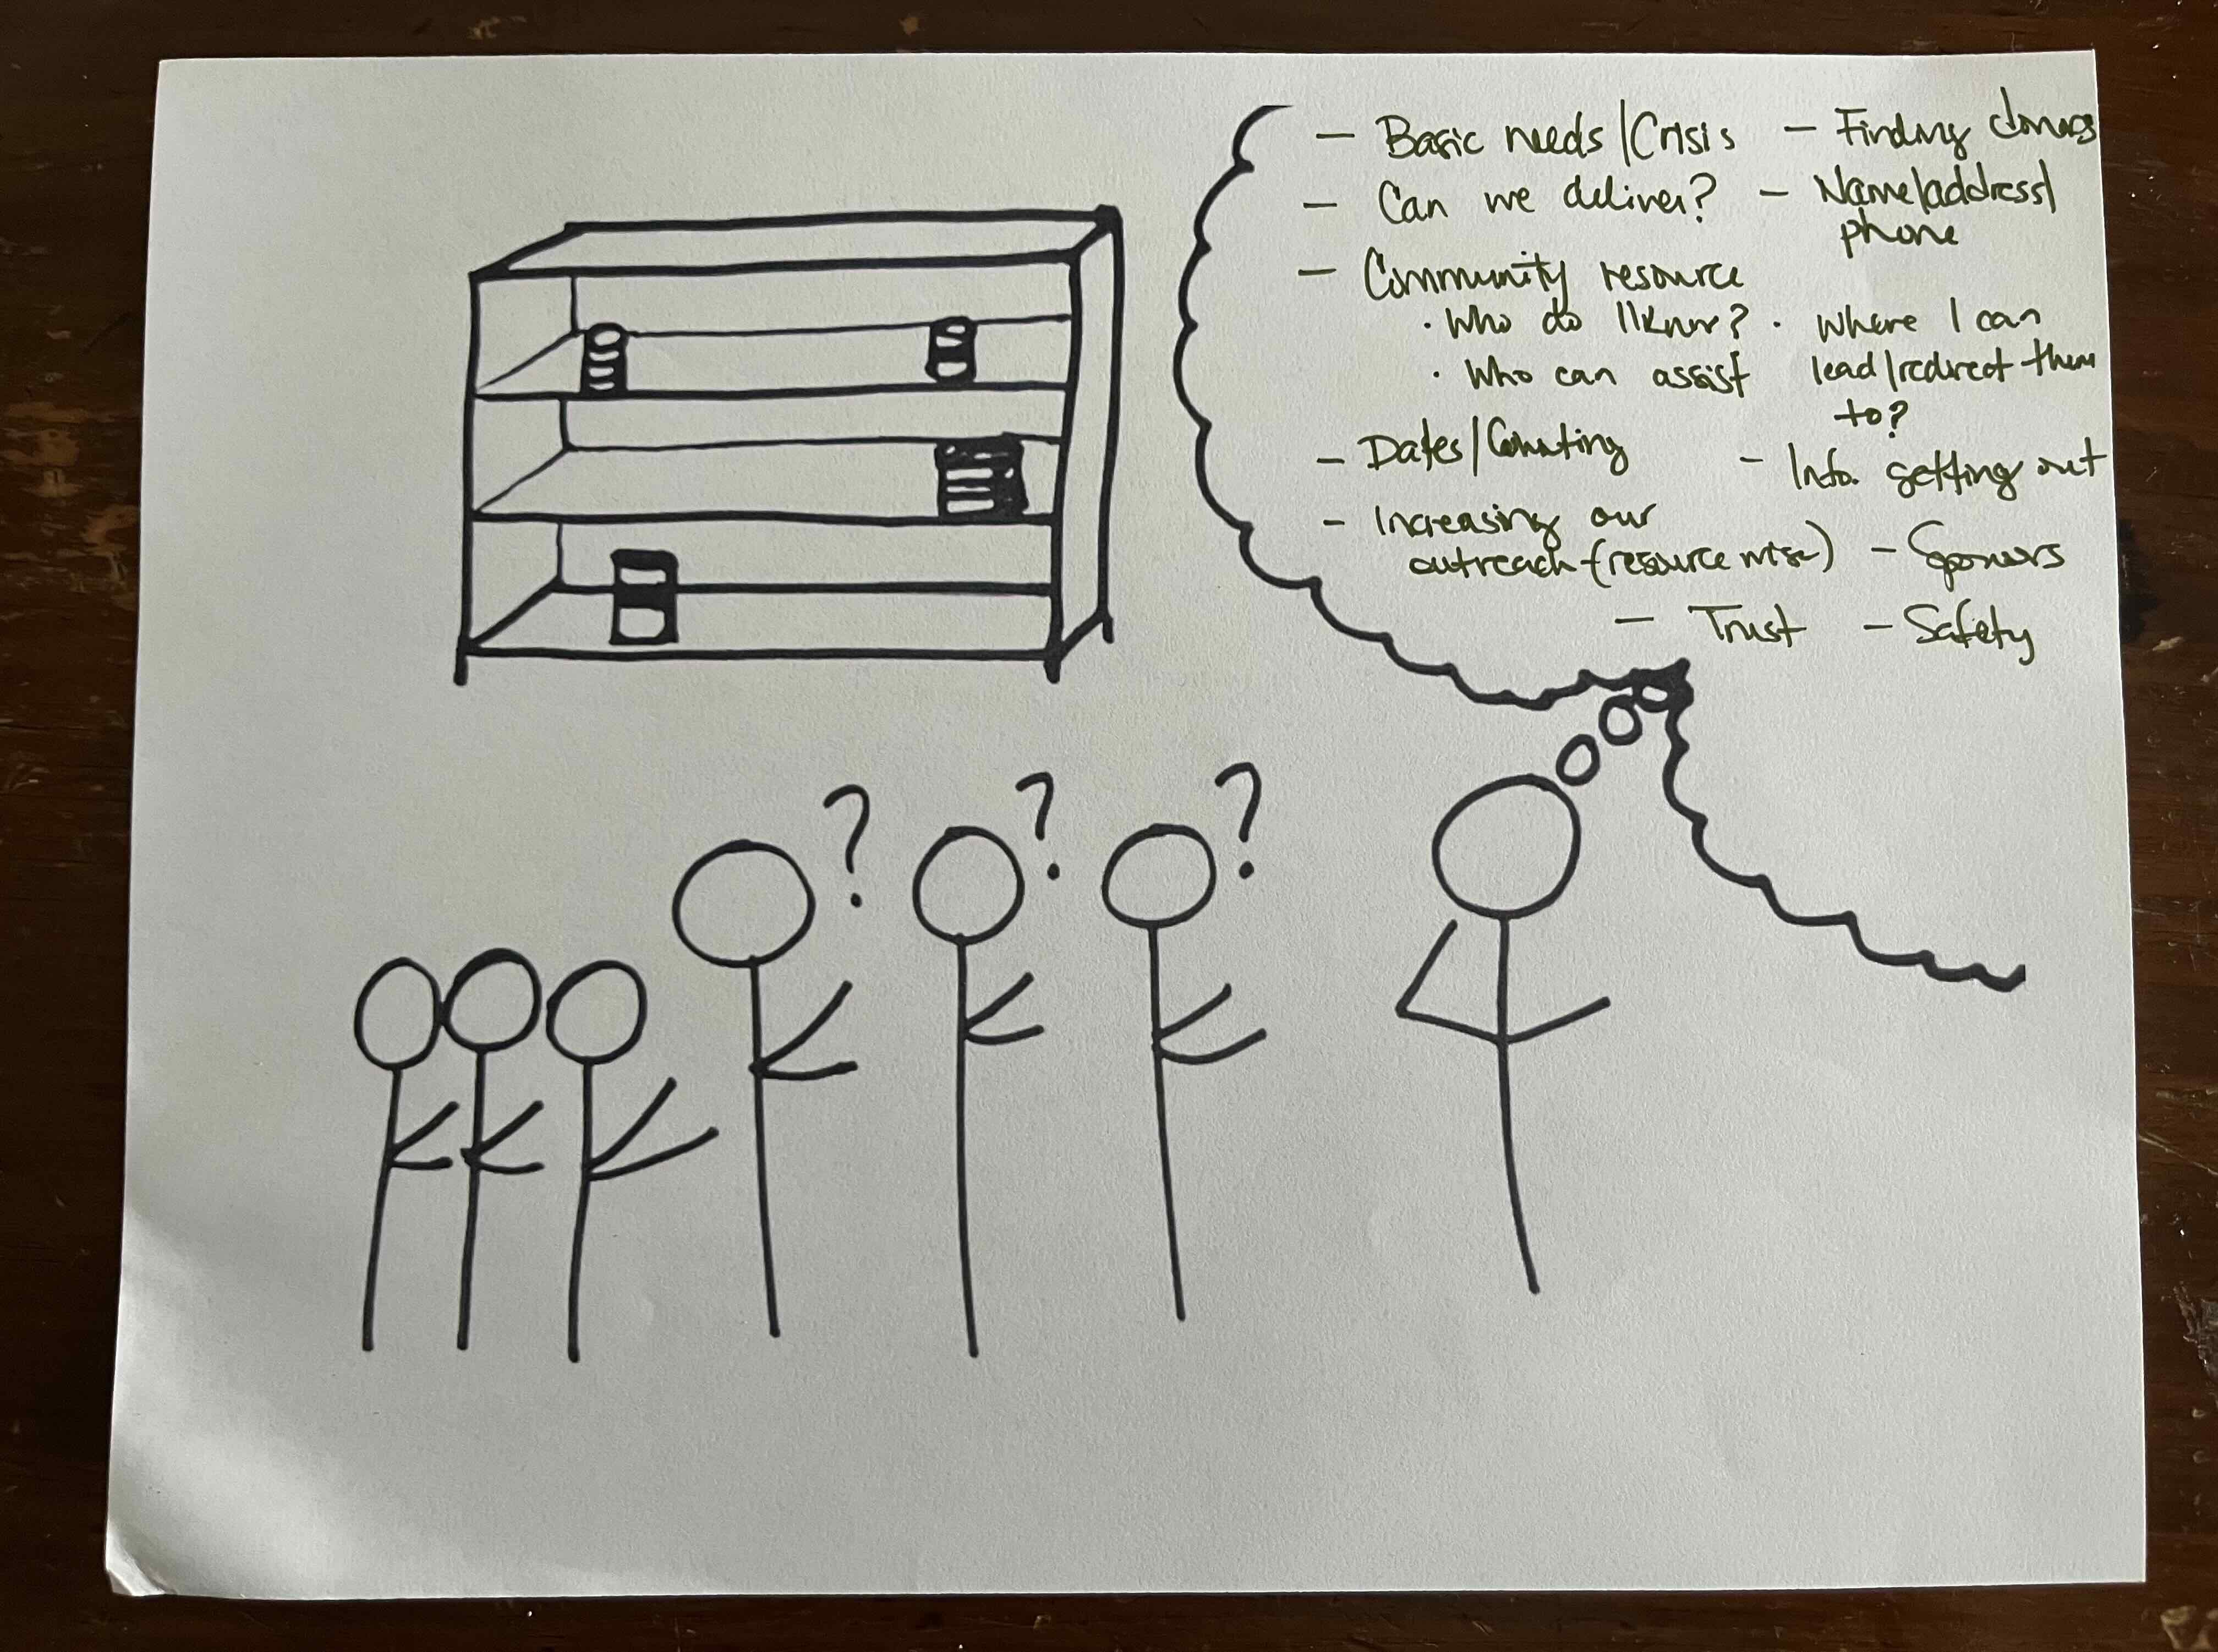 — Basic needs/Crisis
— Can we deliver?
— Community resource
· Who do I know?
· Who can assist
· Where I can
lead/redirect them
to?
— Dates/Counting
— Increasing our
outreach (resource wise)
— Finding donors
— Name/address/
phone
— Info. getting out
— Sponors
— Trust — Safety
?
?
?